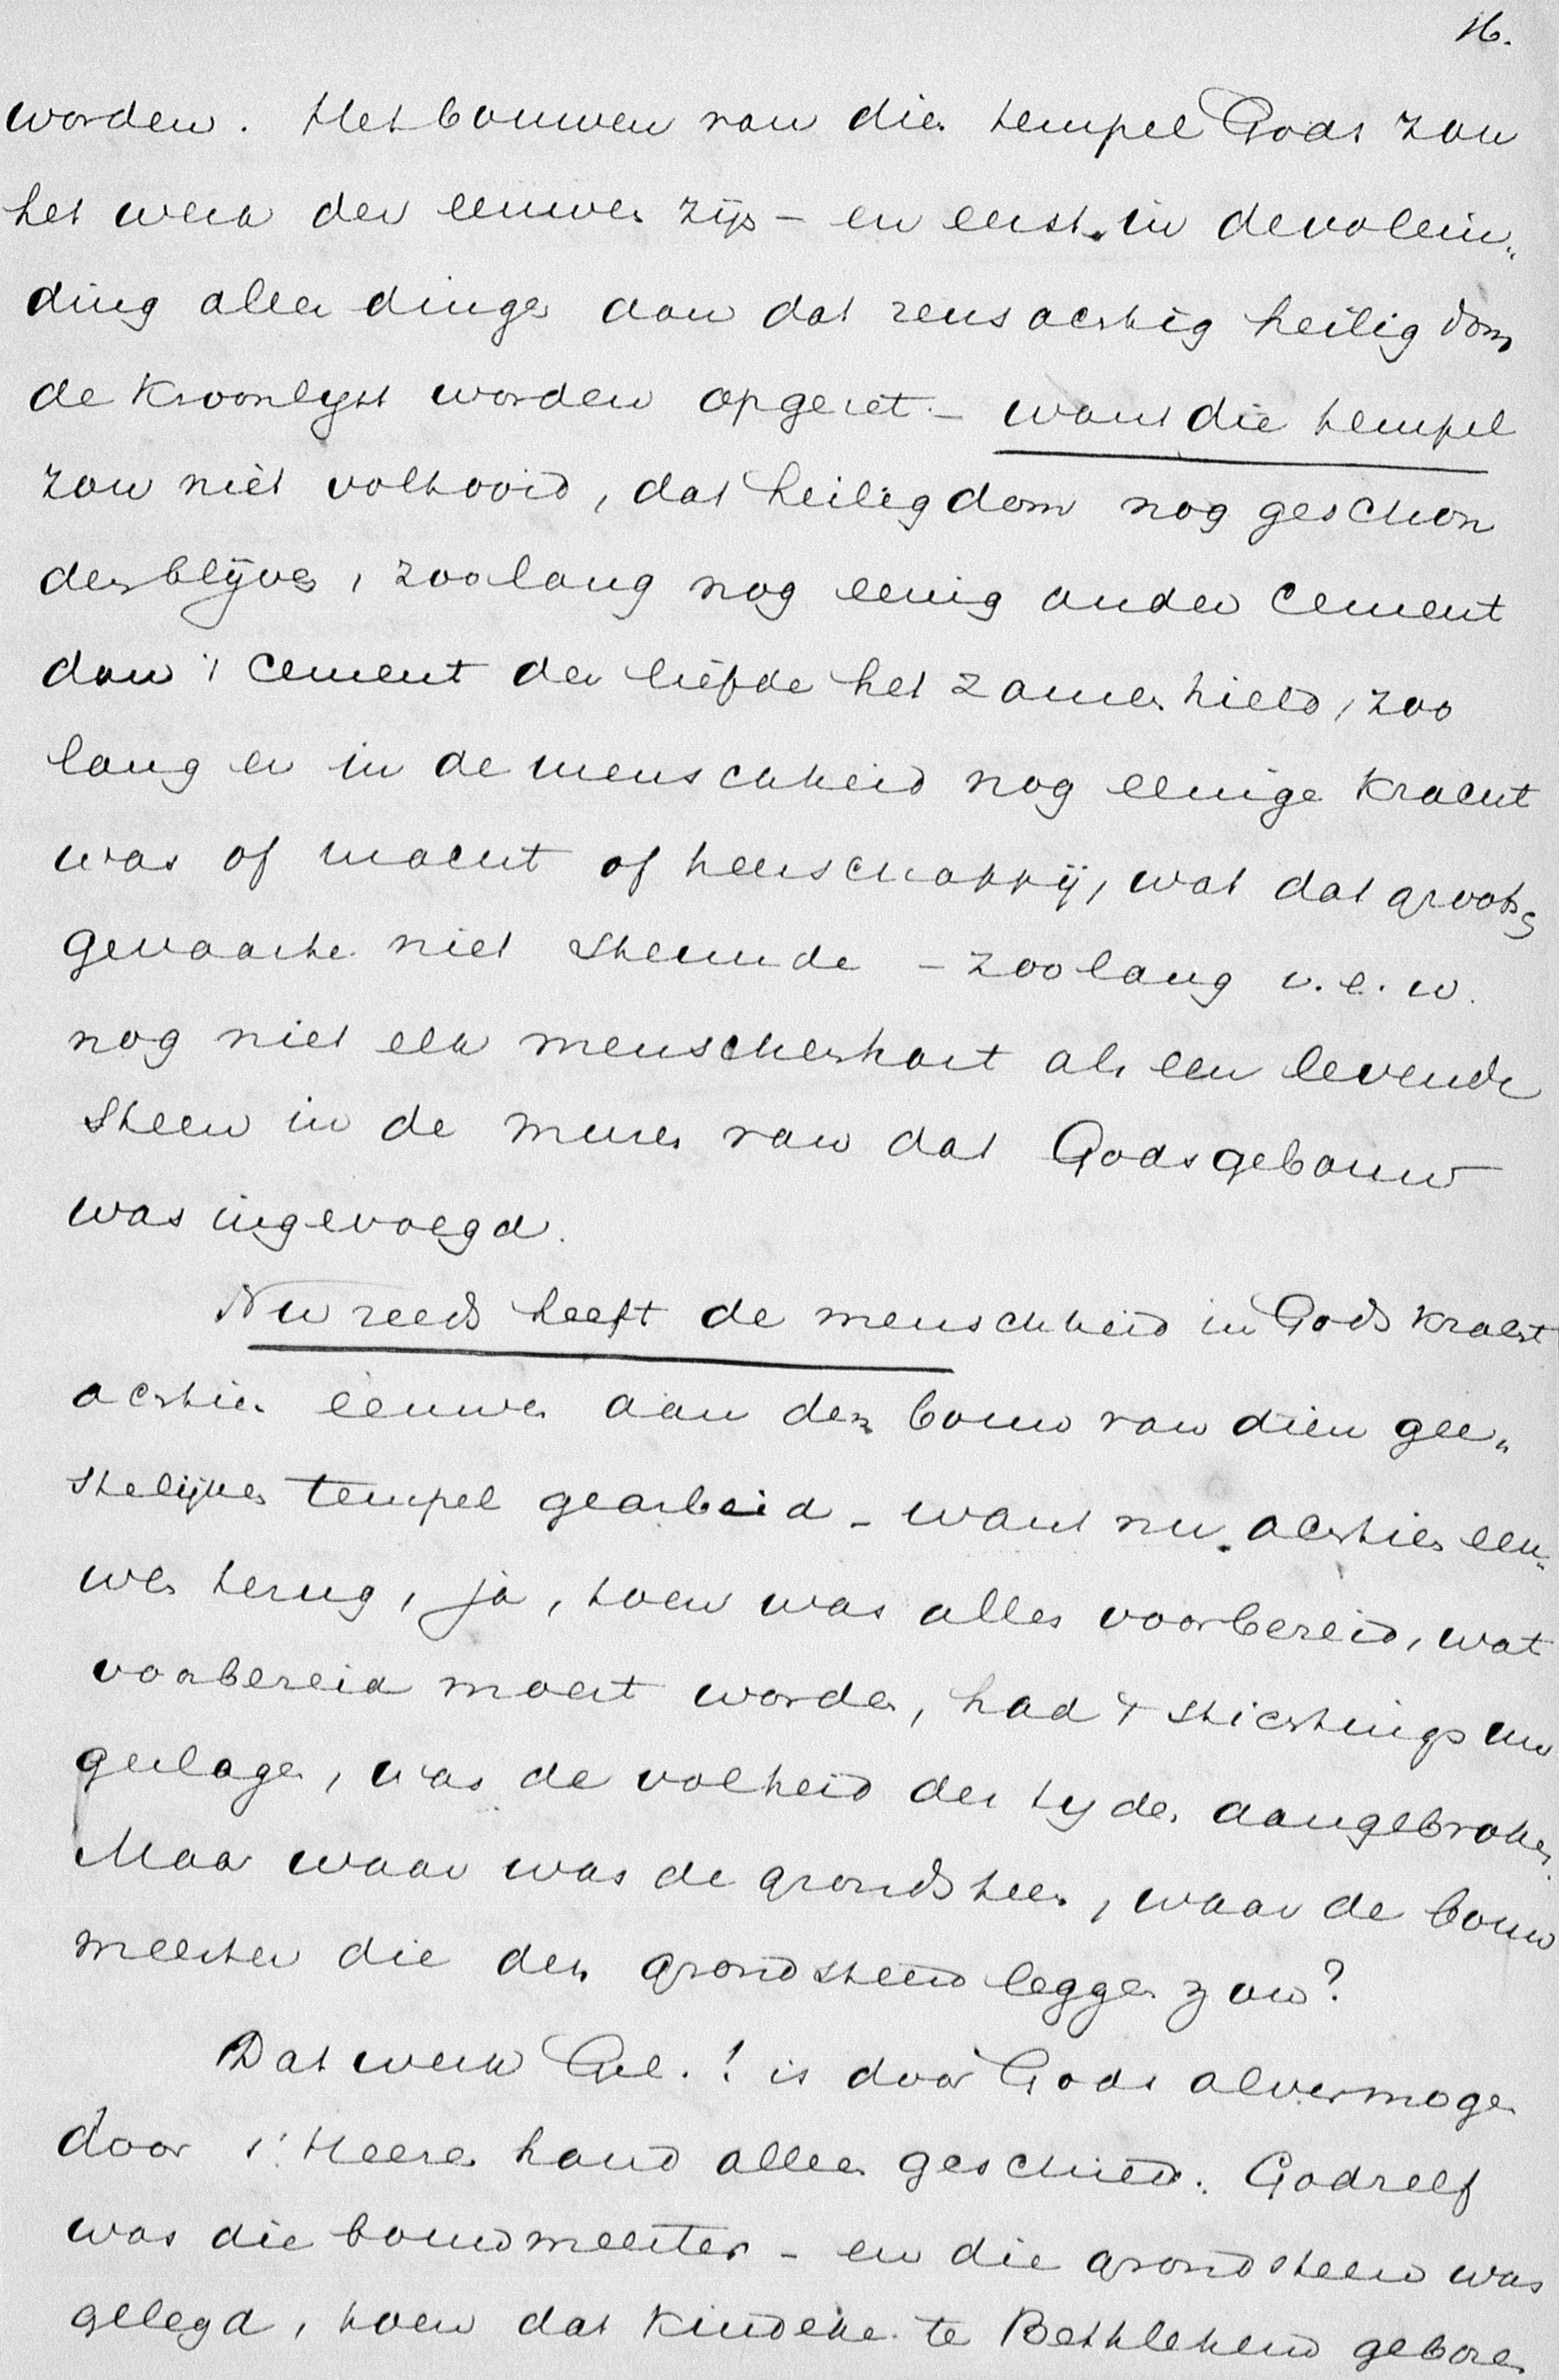 16.
worden. Het bouwen van dien tempel Gods zou
het werk der eeuwen zijn – en eerst in de volein„
ding aller dingen aan dat reusachtig heiligdom
de kroonlyst worden opgezet. – want die tempel
zou niet voltooid, dat heiligdom nog geschon
den blijven, zoolang nog eenig ander cement
dan 't cement der liefde het zamenhield, zoo
lang er in de menschheid nog eenige kracht
was of macht of heerschappij, wat dat grootsch
gevaarte niet steunde – zoolang i. e. w.
nog niet elk menschenhart als een levende
steen in de muren van dat Godsgebouw
was ingevoegd.
Nu reeds heeft de menschheid in Gods kracht
achtien eeuwen aan den bouw van dien gee„
stelijken tempel gearbeid – want nu achtien eeu„
wen terug, ja, toen was alles voorbereid, wat
voorbereid moest worden, had 't stichtings uur
geslagen, was de volheid der tyden aangebroken.
Maar waar was de grondsteen, waar de bouw
meester die den grondsteen leggen zou?
Dat werk Gel.! is door Gods alvermogen
door 's Heeren hand alleen geschied. God zelf
was die bouwmeester – en die grondsteen was
gelegd, toen dat kindeke te Bethlehem geboren